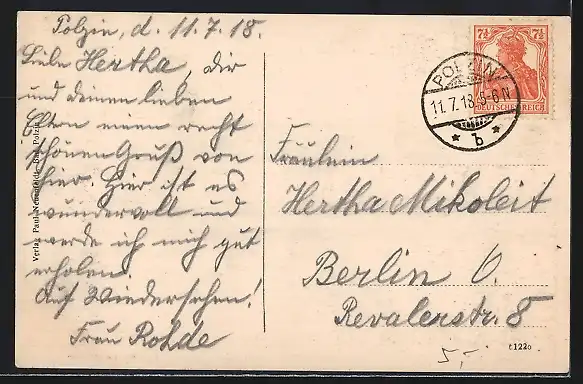 Polzin, d. 11.7.18.
Liebe Hertha, dir
und deinen lieben
Eltern einen recht
schönen Gruß von
hier. Hier ist es
wundervoll und
werde ich mich gut
erholen.
Auf Wiedersehen!
Frau Rohde
Verlag Paul Neuenfeldt, Bad Polzin
7½ 7½
DEUTSCHES REICH
POLZIN
11.7.18.5-6N
* b *
Fräulein
Hertha Mikoleit
Berlin O.
Revalerstr. 8
5,-